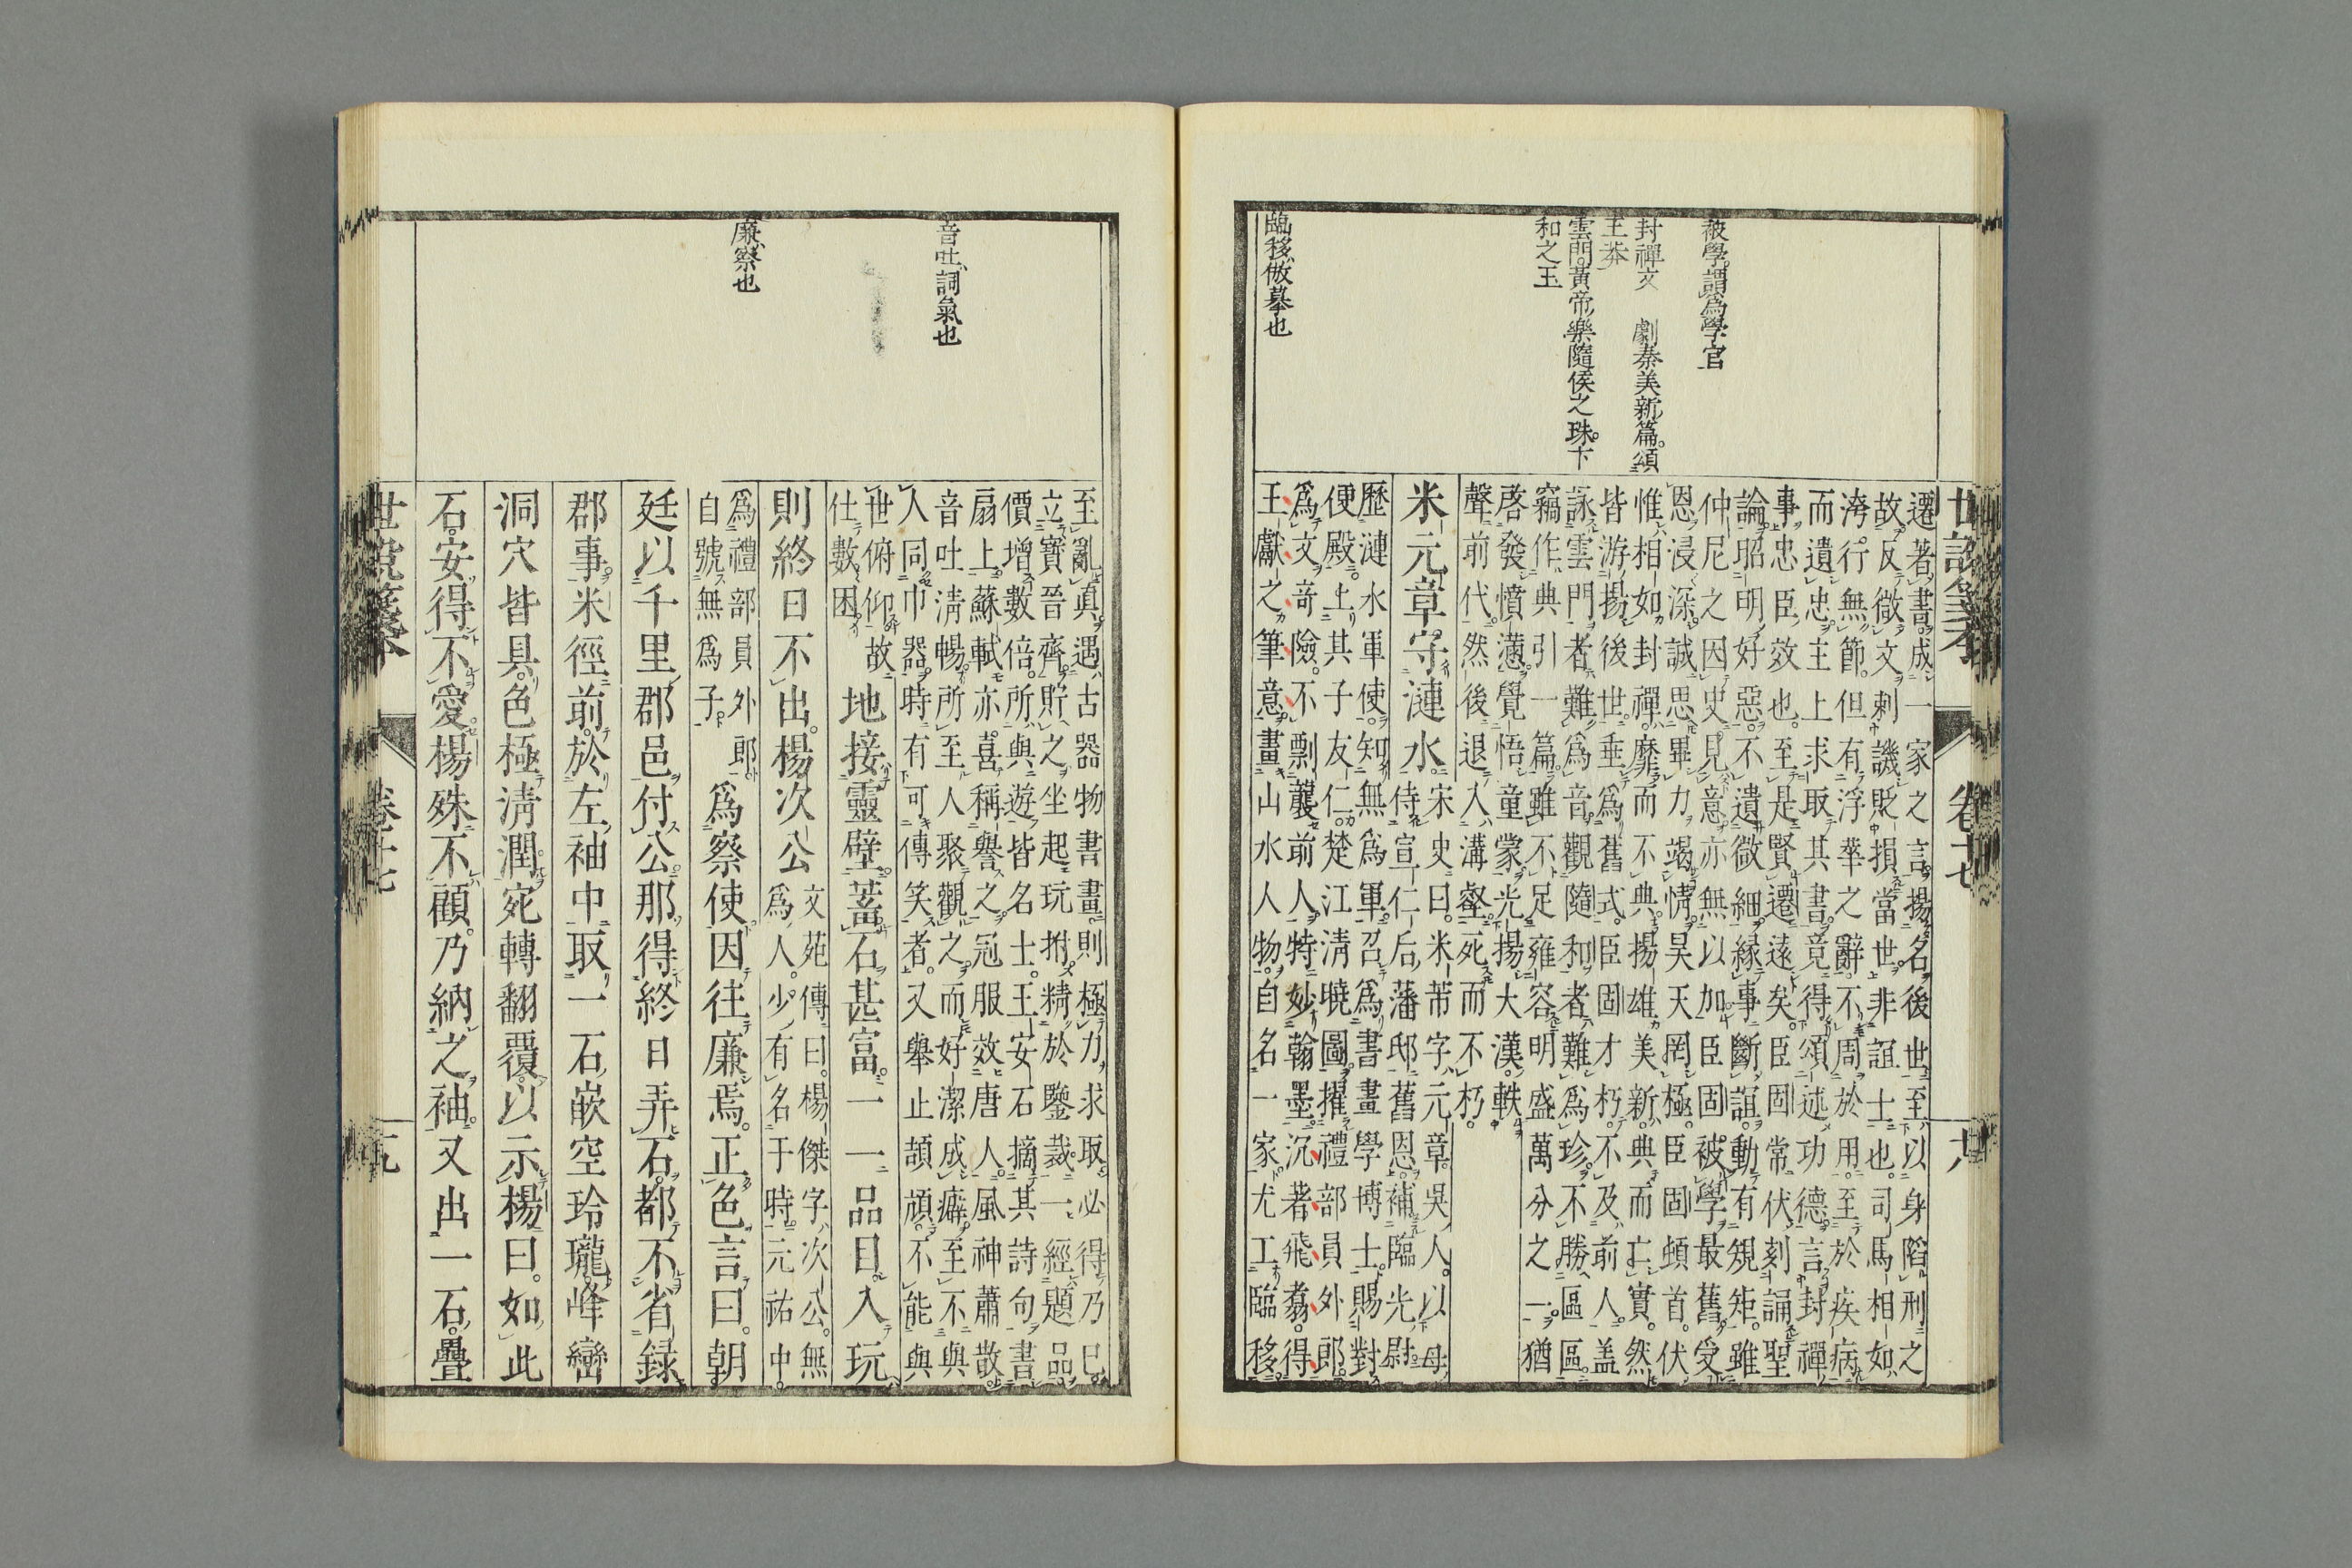 被學謂爲學官
封禪文 劇秦美新篇頌
王莽
雲門黃帝樂隨侯之珠卞
和之玉
臨移倣摹也
世說箋本 卷十七 十八
遷著書成一家之言揚名後世至以身陷刑之
故反微文刺譏貶損當世非誼士也司馬相如
洿行無節但有浮華之辭不周於用至於疾病
而遺忠主上求取其書竟得頌述功德言封禪
事忠臣效也至是賢遷遠矣臣固常伏刻誦聖
論昭明好惡不遺微細緣事斷誼動有規矩雖
仲尼之因史見意亦無以加臣固被學最舊受
恩浸深誠思畢力竭情昊天罔極臣固頓首伏
惟相如封禪靡而不典揚雄美新典而亡實然
皆游揚後世垂爲舊式臣固才朽不及前人盖
詠雲門者難爲音觀隨和者難爲珍不勝區區
竊作典引一篇雖不足雍容明盛萬分之一猶
啓發憤懣覺悟童蒙光揚大漢軼
聲前代然後退入溝壑死而不朽
米元章守漣水
宋史曰米芾字元章吳人以母
侍宣仁后藩邸舊恩補臨光尉
歷漣水軍使知無爲軍召爲書畫學博士賜對
便殿上其子友仁楚江淸曉圖擢禮部員外郎
爲文奇險不剽襲前人特妙翰墨沉著飛翥得
王獻之筆意畫山水人物自名一家尤工臨移
音吐詞氣也
廉察也
至亂眞遇古器物書畫則極力求取必得乃已
立寶晉齋貯之坐起玩拊精於鑒裁一經題品
價增數倍所與遊皆名士王安石摘其詩句書
扇上蘇軾亦喜稱譽之冠服效唐人風神蕭散
音吐淸暢所至人聚觀之而好潔成癖至不與
人同巾器時有可傳笑者又舉止頡頏不能與
世俯仰故
仕數困
地接靈壁蓄石甚富一一品目入玩
則終日不出楊次公
文苑傳曰楊傑字次公無
爲人少有名于時元祐中
爲禮部員外郎
自號無爲子
爲察使因往廉焉正色言曰朝
廷以千里郡邑付公那得終日弄石都不省録
郡事米徑前於左袖中取一石嵌空玲瓏峰巒
洞穴皆具色極淸潤宛轉翻覆以示楊曰如此
石安得不愛楊殊不顧乃納之袖又出一石疊
世說箋本 卷十七